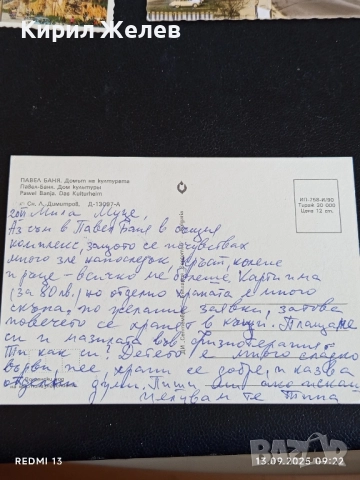 Кирил Желев
ПАВЕЛ БАНЯ. Домът на културата
Павел-Баня. Дом культуры
Pawel Banja. Das Kulturheim
Сн. Л. Димитров. Д-13097-А
ИП-758-И/90
Тираж 20 000
Цена 12 ст.
Мила
Аз съм в Павел Баня в същия
комплекс, защото се почувствах
много зле напоследък кръст, колене
и ръце - всичко ме болеше. Карти има
(за 80 лв.) но отделно храната е много
скъпа, по желание заявки, затова
повечето се хранят в къщи. Плащаме
си и мазилата във физиотерапията.
Ти как си? Детето е много сладко
върви, пее, храни се добре, и казва
думи. Пиши, ако искаш
Целувам те
REDMI 13
13.09.2025 09:22
bazar